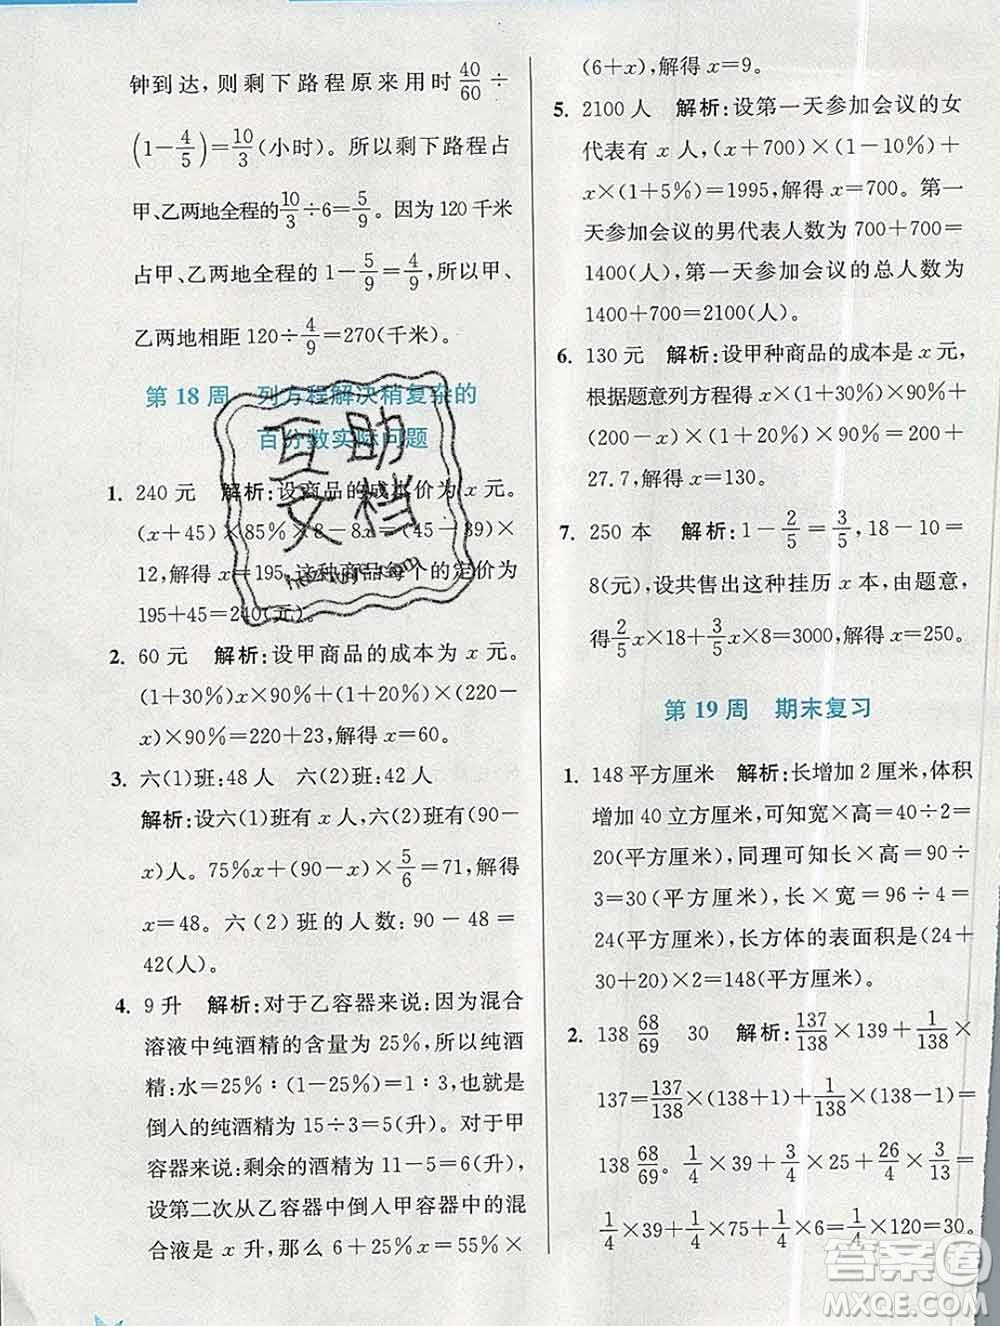 钟到达，则剩下路程原来用时40/60÷
(1－4/5)＝10/3(小时)。所以剩下路程占
甲、乙两地全程的10/3÷6＝5/9。因为120千米
占甲、乙两地全程的1－5/9＝4/9，所以甲、
乙两地相距120÷4/9＝270(千米)。
第18周 列方程解决稍复杂的
百分数实际问题
1. 240元 解析:设商品的成本价为x元。
(x＋45)×85%×8－8x＝(45－39)×
12，解得x＝195，这种商品每个的定价为
195＋45＝240(元)。
2. 60元 解析:设甲商品的成本为x元。
(1＋30%)x×90%＋(1＋20%)×(220－
x)×90%＝220＋23，解得x＝60。
3. 六(1)班:48人 六(2)班:42人
解析:设六(1)班有x人，六(2)班有(90－
x)人。75%x＋(90－x)×5/6＝71，解得
x＝48。六(2)班的人数:90－48＝
42(人)。
4. 9升 解析:对于乙容器来说:因为混合
溶液中纯酒精的含量为25%，所以纯酒
精:水＝25%:(1－25%)＝1:3，也就是
倒入的纯酒精为15÷3＝5(升)。对于甲
容器来说:剩余的酒精为11－5＝6(升)，
设第二次从乙容器中倒入甲容器中的混
合液是x升，那么6＋25%x＝55%×
(6＋x)，解得x＝9。
5. 2100人 解析:设第一天参加会议的女
代表有x人，(x＋700)×(1－10%)＋
x×(1＋5%)＝1995，解得x＝700。第一
天参加会议的男代表人数为700＋700＝
1400(人)，第一天参加会议的总人数为
1400＋700＝2100(人)。
6. 130元 解析:设甲种商品的成本是x元，
根据题意列方程得x×(1＋30%)×90%＋
(200－x)×(1＋20%)×90%＝200＋
27.7，解得x＝130。
7. 250本 解析:1－2/5＝3/5，18－10＝
8(元)，设共售出这种挂历x本，由题意，
得2/5x×18＋3/5x×8＝3000，解得x＝250。
第19周 期末复习
1. 148平方厘米 解析:长增加2厘米，体积
增加40立方厘米，可知宽×高＝40÷2＝
20(平方厘米)，同理可知长×高＝90÷
3＝30(平方厘米)，长×宽＝96÷4＝
24(平方厘米)，长方体的表面积是(24＋
30＋20)×2＝148(平方厘米)。
2. 138 68/69 30 解析:137/138×139＋1/138×
137＝137/138×(138＋1)＋1/138×(138－1)＝
138 68/69。1/4×39＋3/4×25＋26/4×3/13＝
1/4×39＋1/4×75＋1/4×6＝1/4×120＝30。
互助
文档
答案圈
MXQE.COM